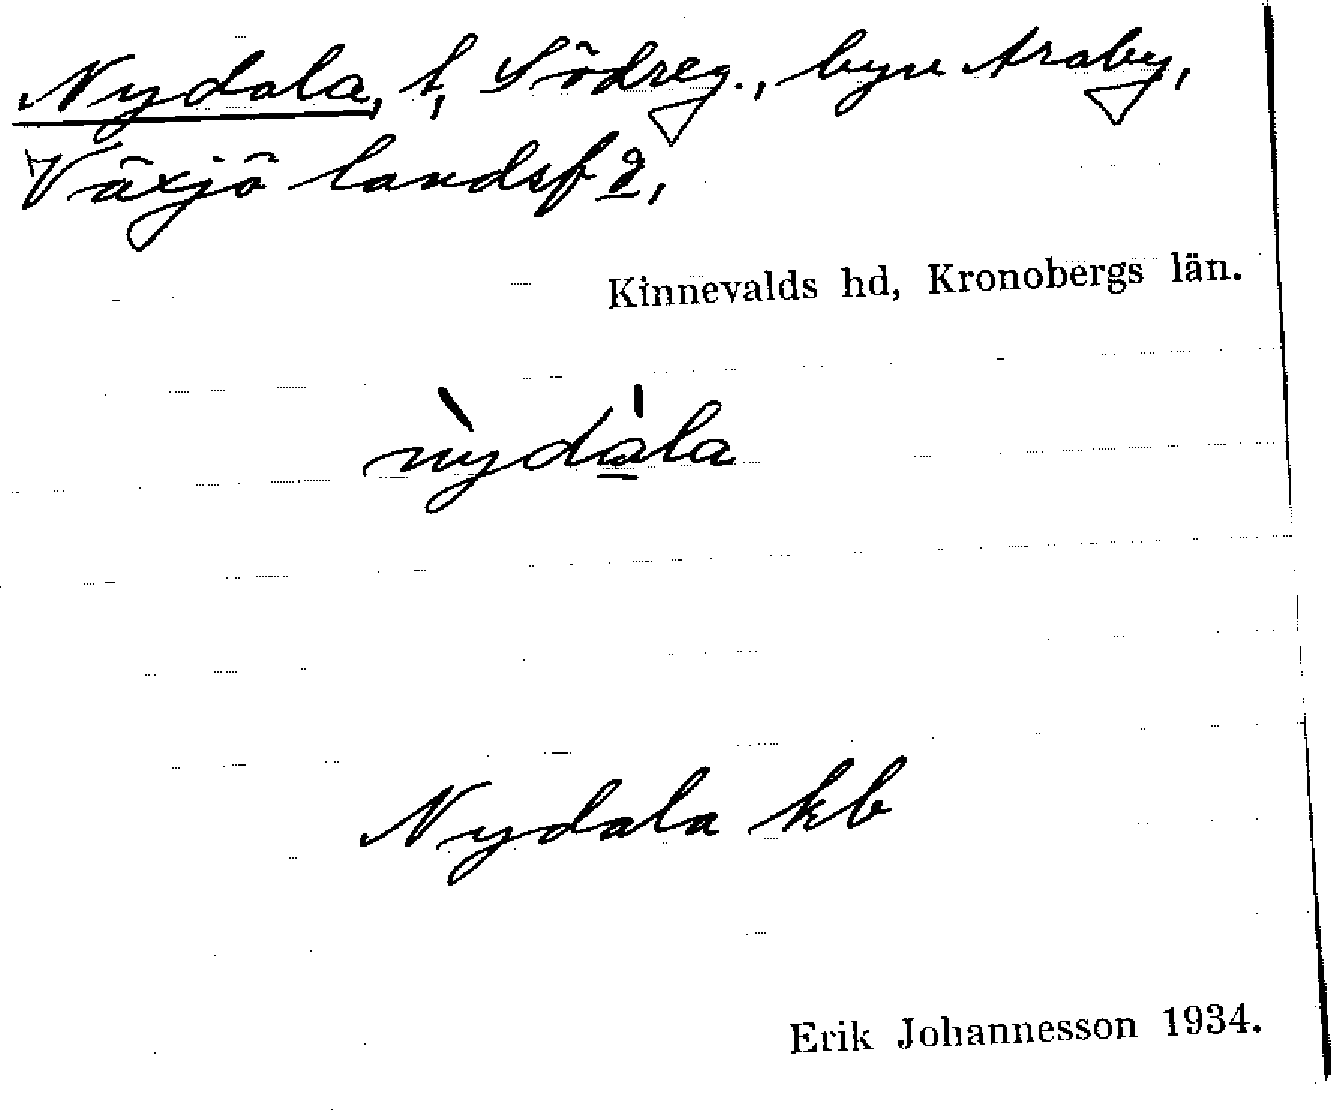 Nydala, l, Södreg., byn Araby,
Växjö landsf d,
Kinnevalds hd, Kronobergs län.
nỳdála
Nydala kb
Erik Johannesson 1934.